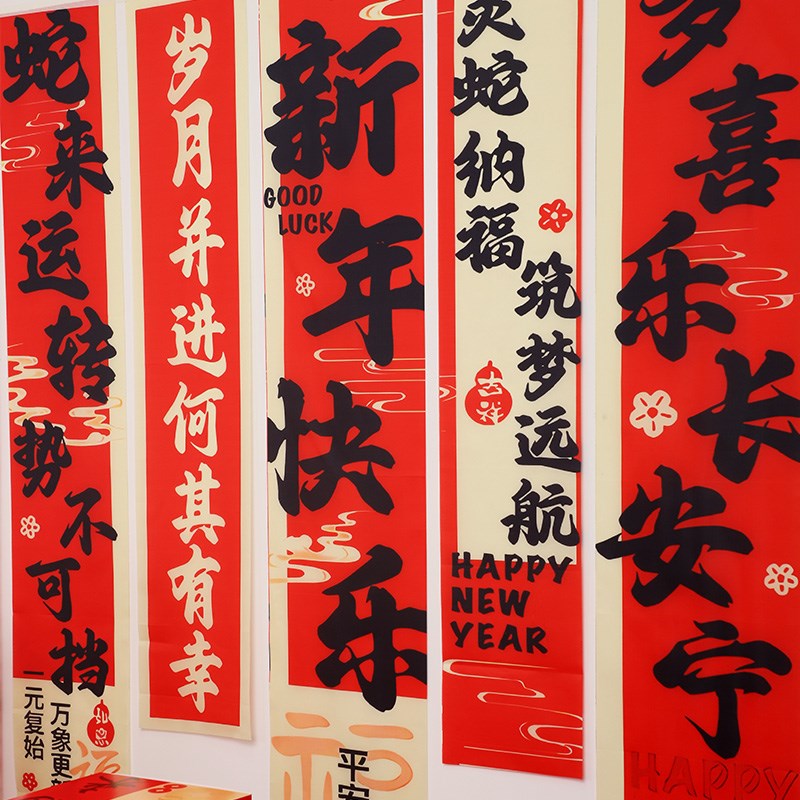 蛇来运转
势不可挡
一元复始
万象更新
礼恩
福
岁月并进何其有幸
新年快乐
GOOD
LUCK
福
平安
灵蛇纳福
筑梦远航
吉祥
HAPPY
NEW
YEAR
多喜乐长安宁
HAPPY